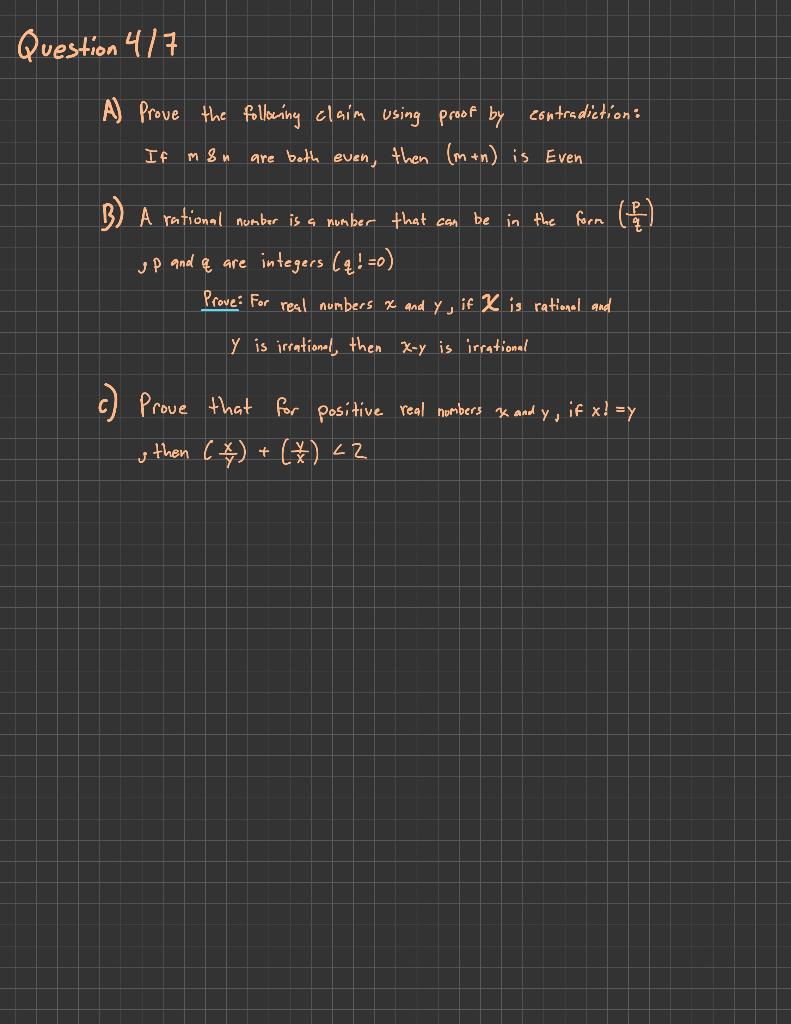 Question 4/7
A) Prove the following claim using proof by contradiction:
If m & n are both even, then (m+n) is Even
B) A rational number is a number that can be in the form (p/q)
, p and q are integers (q! =0)
Prove: For real numbers x and y, if x is rational and
y is irrational, then x-y is irrational
c) Prove that for positive real numbers x and y, if x! =y
, then (x/y) + (y/x) < 2